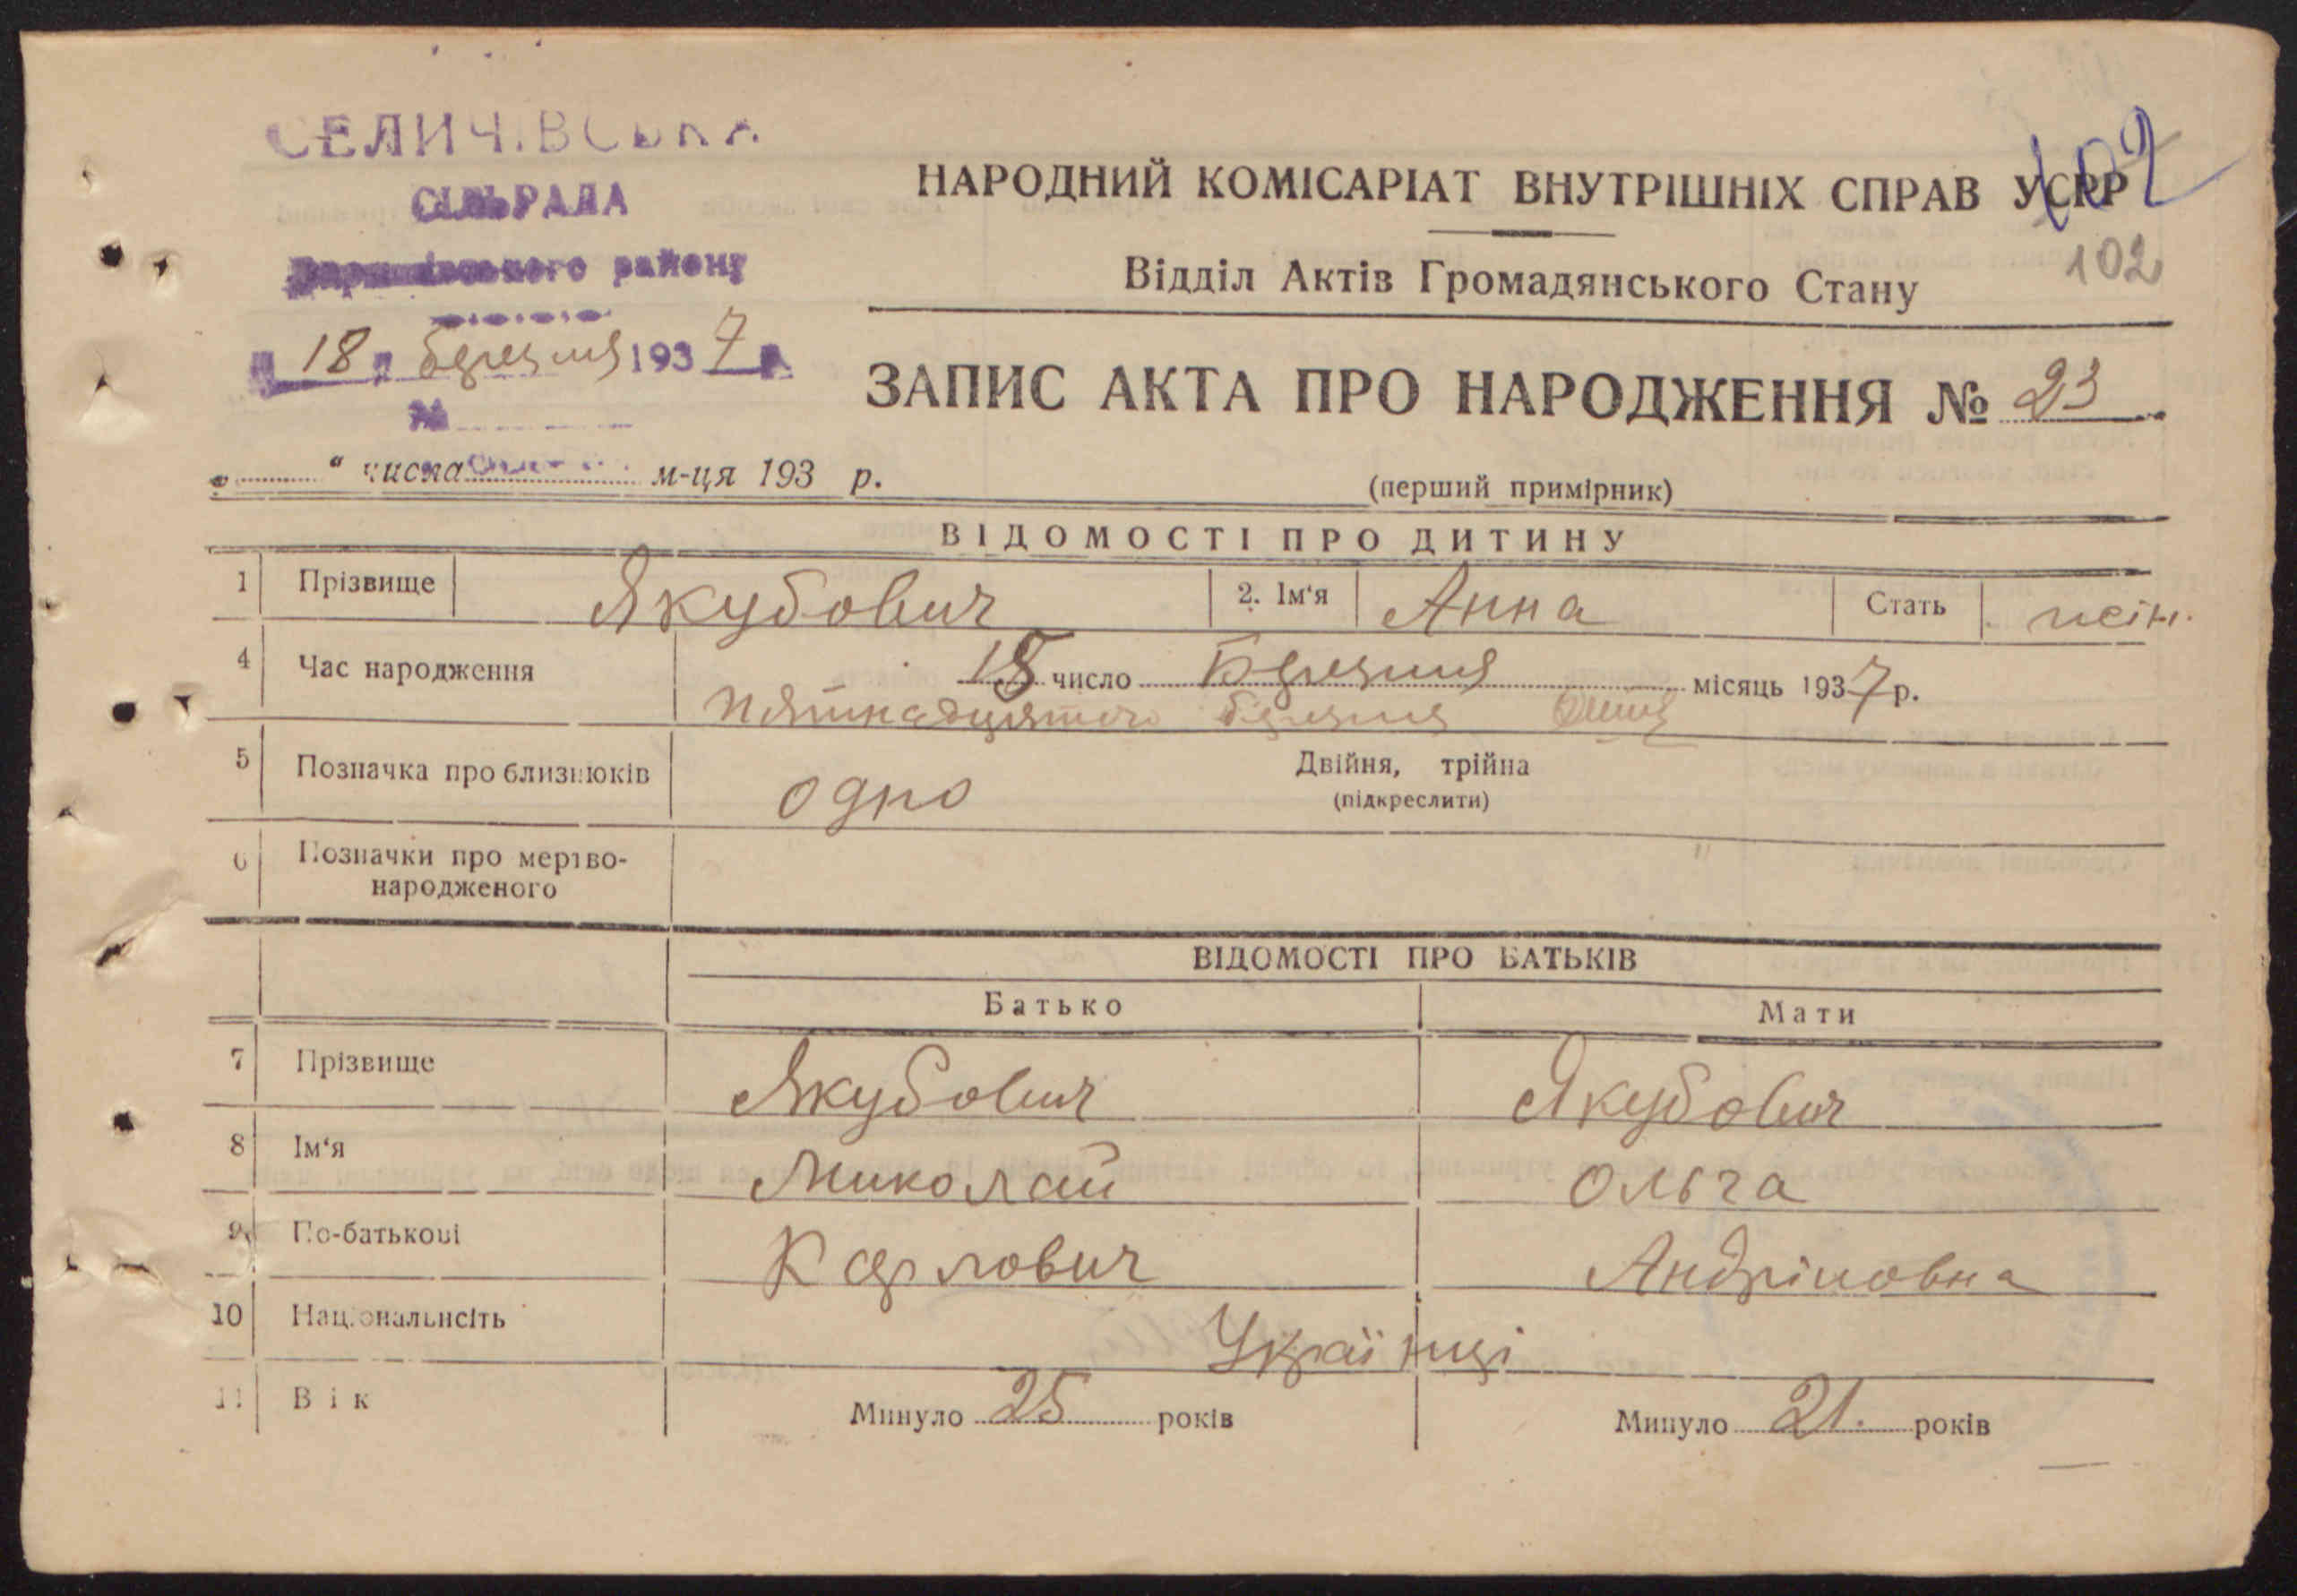 СЕЛИЧІВСЬКА
СІЛЬРАДА
району
102
НАРОДНИЙ КОМІСАРІАТ ВНУТРІШНІХ СПРАВ УСРР
Відділ Актів Громадянського Стану
102
„18" березня 1937 р.
№
ЗАПИС АКТА ПРО НАРОДЖЕННЯ № 23
„ “ числа м-ця 193 р.
(перший примірник)
ВІДОМОСТІ ПРО ДИТИНУ
1 Прізвище Якубович 2. Ім‘я Анна Стать жін.
4 Час народження 15 число Березня місяць 1937 р.
Пятнадцятого березня
5 Позначка про близнюків одно Двійня, трійна
(підкреслити)
6 Позначки про мертво-
народженого "
ВІДОМОСТІ ПРО БАТЬКІВ
Батько Мати
7 Прізвище Якубович Якубович
8 Ім‘я Миколай Ольга
9 По-батькові Карлович Андріиовна
10 Національність Українці
11 Вік Минуло 25 років Минуло 21. років